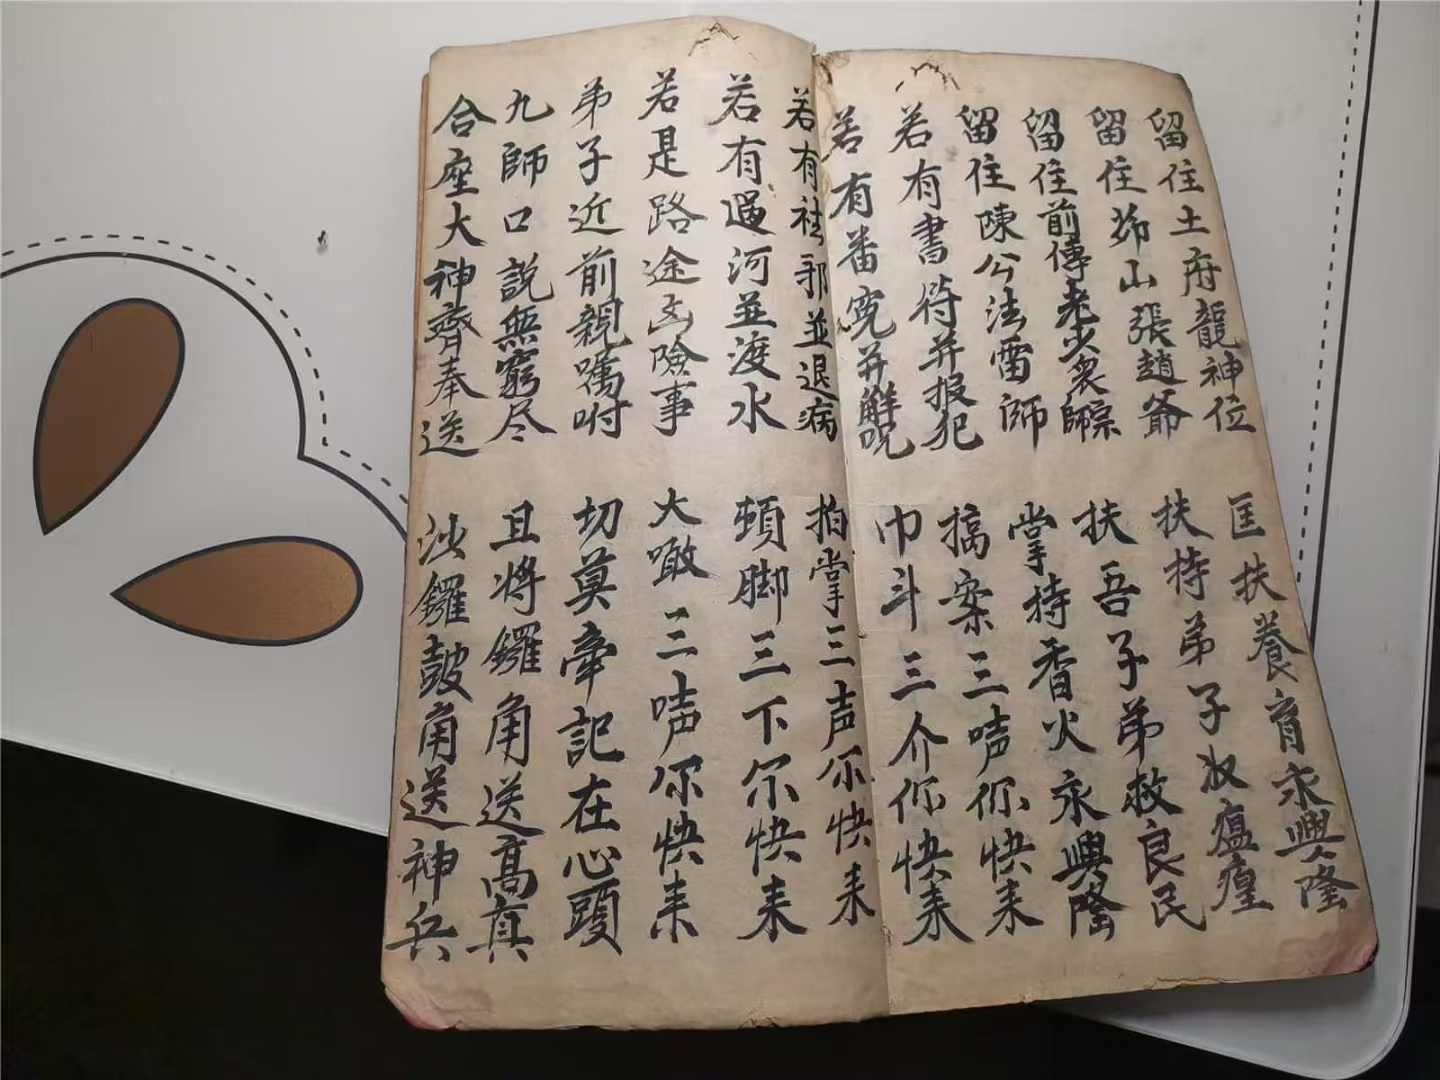 留住土府龍神位 匡扶養育永興隆
留住茆山張趙爺 扶持弟子收瘟瘟
留住前傳老少衆師宗 扶吾子弟救良民
留住陳公法雷師 掌持香火永興隆
若有書符并报犯 搞案三唭你快来
若有番寃并解呪 巾斗三介你快来
若有祛邪並退病 拍掌三声尔快来
若有過河並渡水 頓脚三下尔快来
若是路途凶險事 大噉三唭尔快来
弟子近前親嘱咐 切莫牵記在心頭
九師口説無窮尽 且将鑼角送高真
合座大神齊奉送 沙鑼皷角送神兵